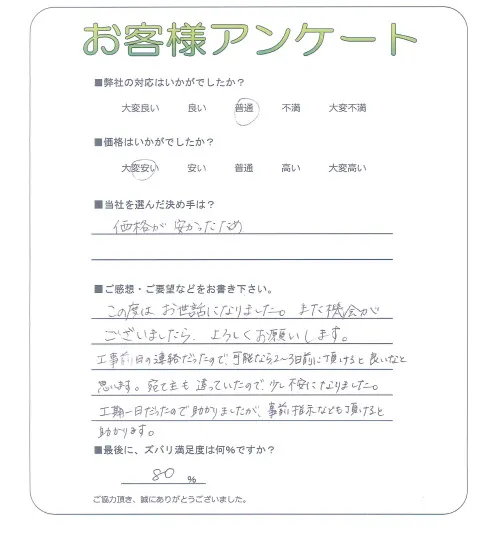 お客様アンケート
■弊社の対応はいかがでしたか?
大変良い 良い 普通 不満 大変不満
■価格はいかがでしたか?
大変安い 安い 普通 高い 大変高い
■当社を選んだ決め手は?
価格が安かったため
■ご感想・ご要望などをお書き下さい。
この度はお世話になりました。また機会が
ございましたら、よろしくお願いします。
工事前日の連絡だったので、可能なら2~3日前に頂けると良いなと
思います。宛て主も違っていたので少し不安になりました。
工期一日だったので助かりましたが、事前指示なども頂けると
助かります。
■最後に、ズバリ満足度は何%ですか?
80 %
ご協力頂き、誠にありがとうございました。